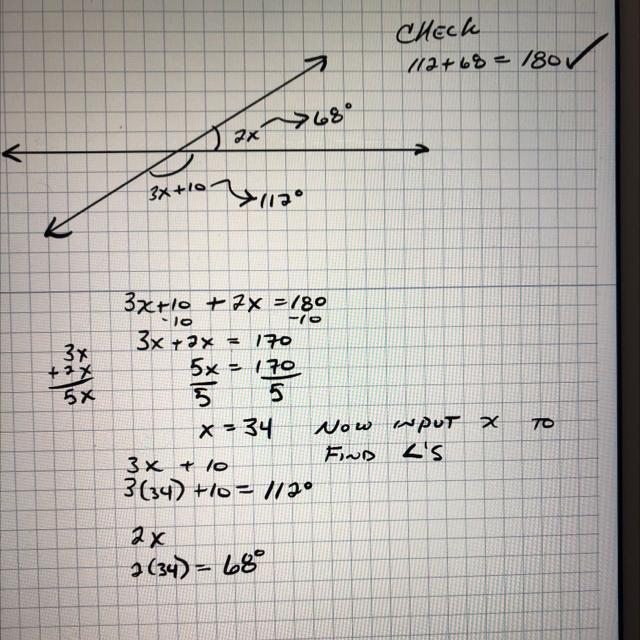 CHECK
112+68 = 180✓
2x → 68°
3x+10 → 112°
3x+10 + 2x = 180
-10 -10
3x+2x = 170
3x
+2x
5x
5x = 170
5 5
x = 34 NOW INPUT x TO
FIND ∠'S
3x + 10
3(34) +10 = 112°
2x
2(34) = 68°